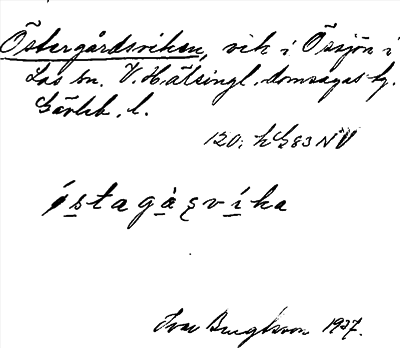 Östergårdsviken, vik i Össjön i
Los sn. V. Hälsingl. domsagas tg.
Gävleb. l.
120; h G 83 NV
östagåṣvika
Ivar Bengtsson 1937.